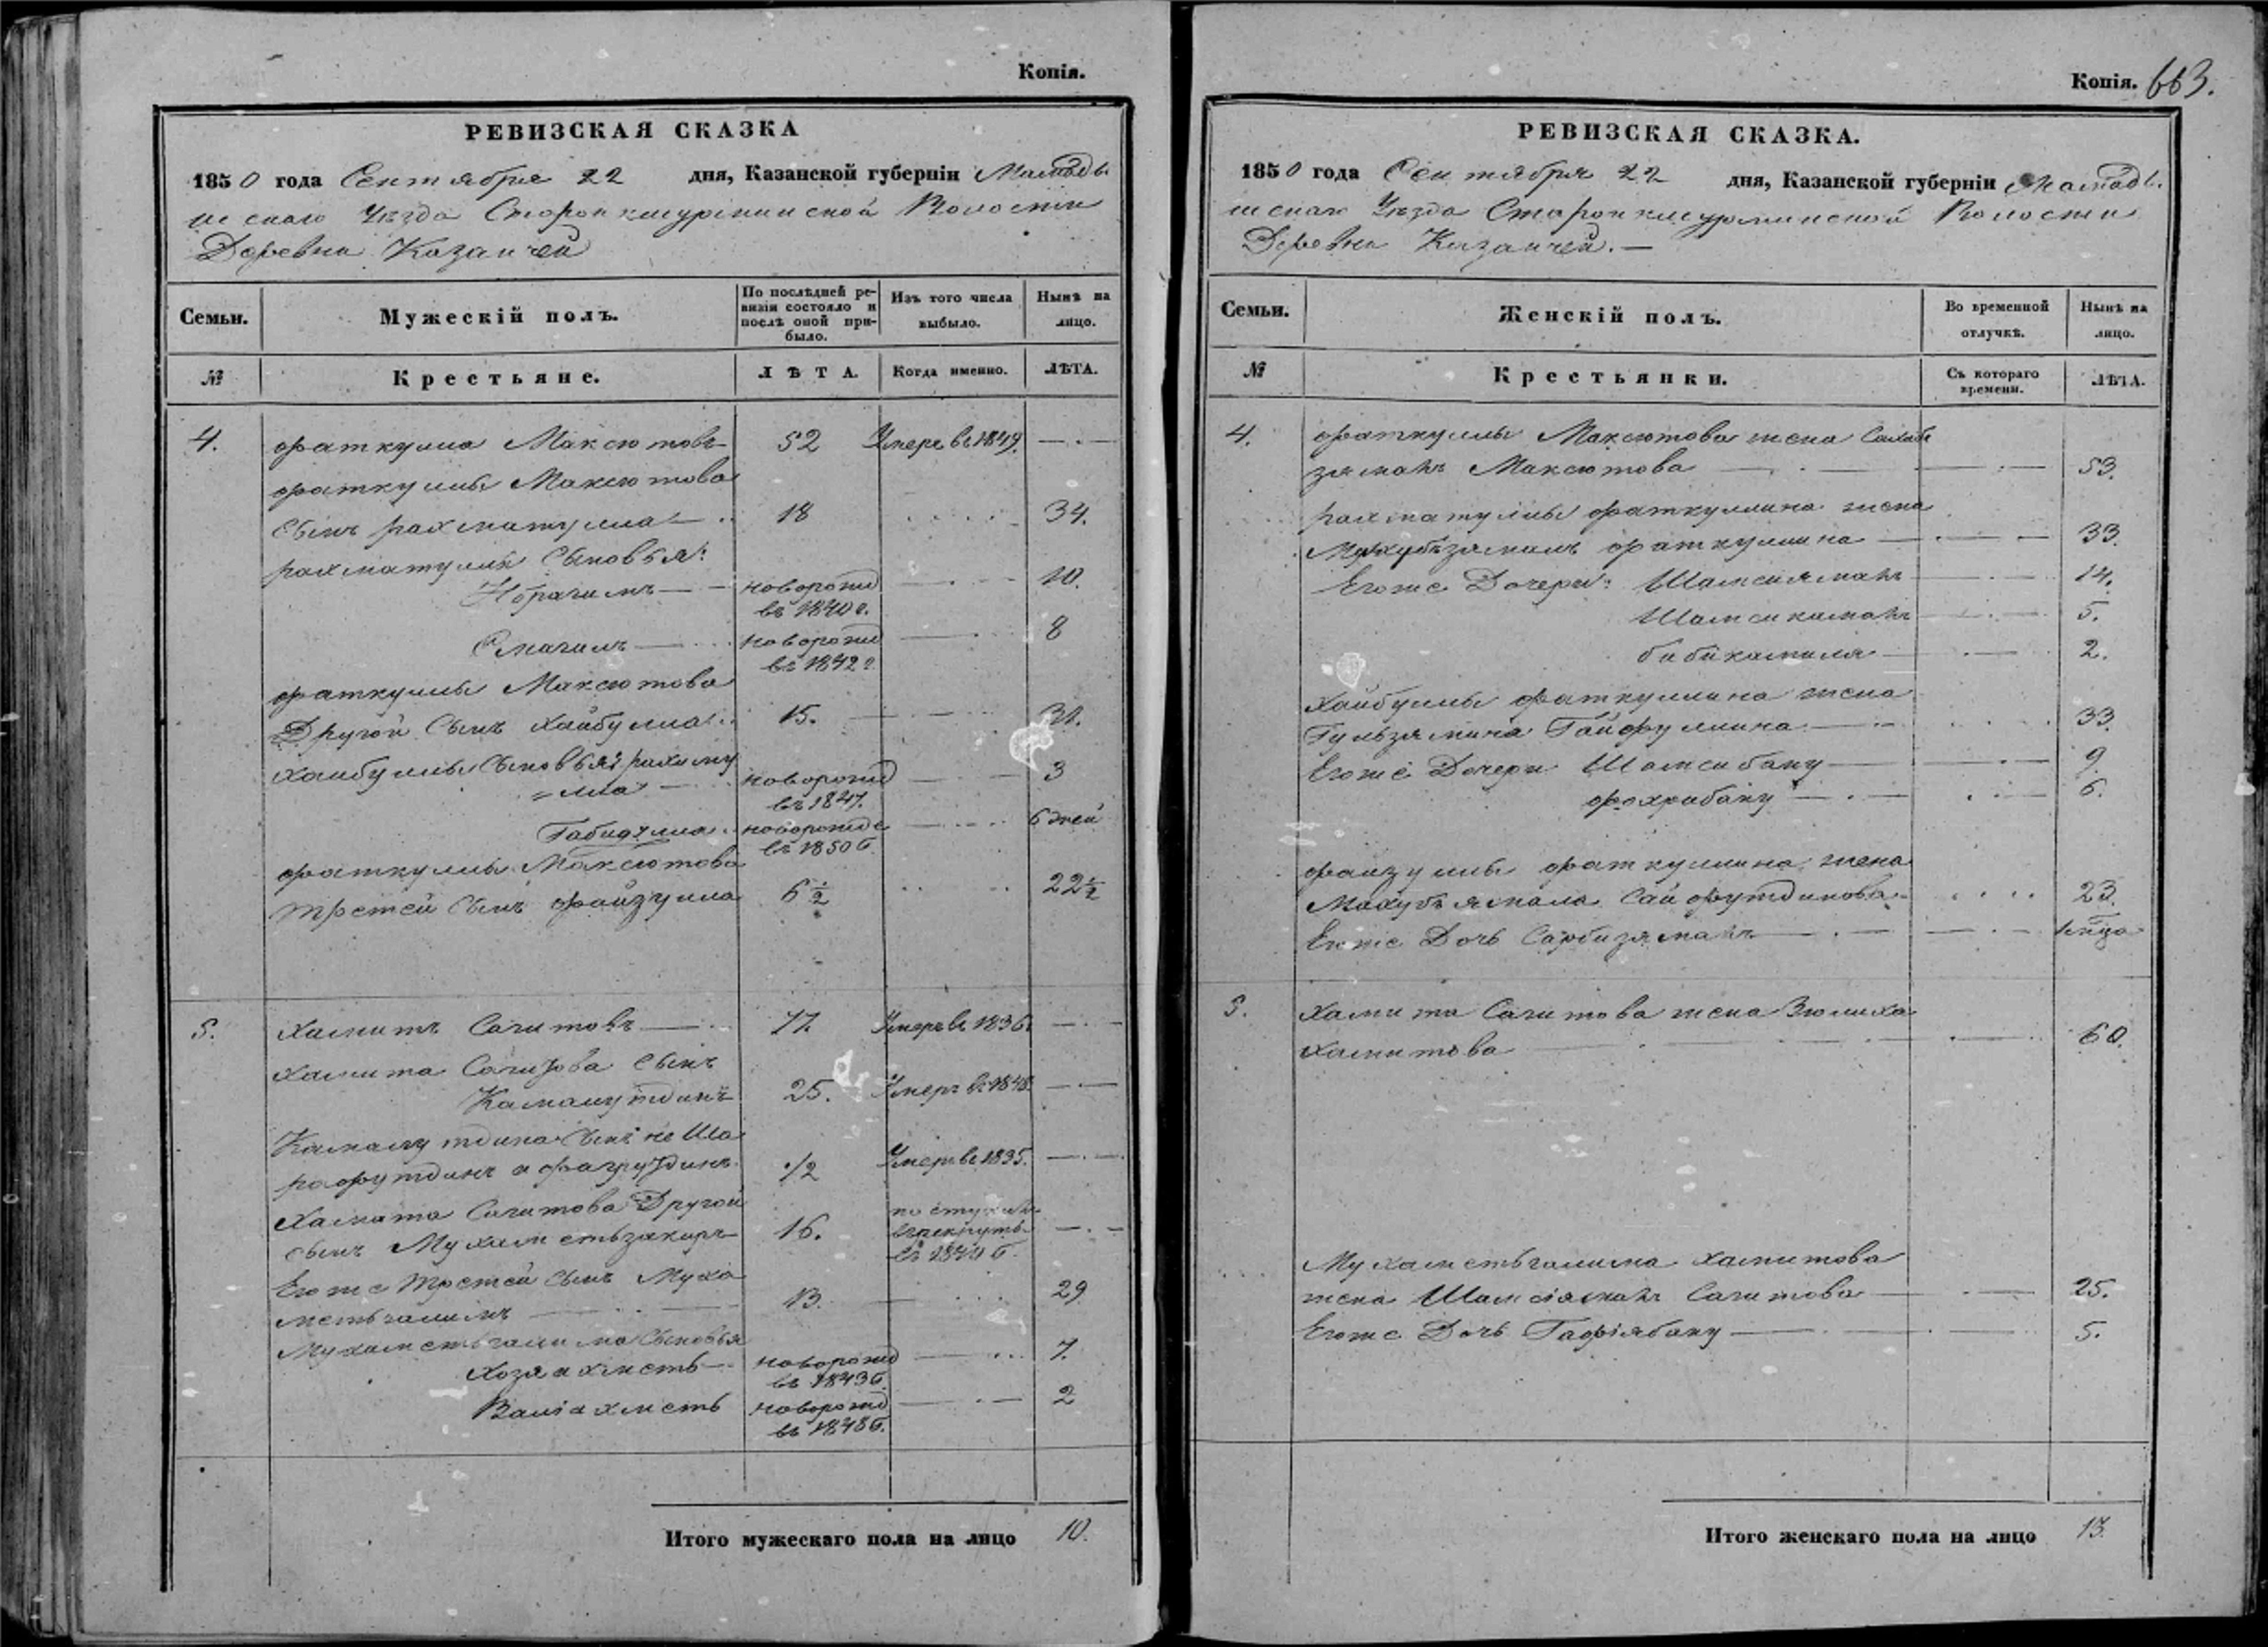 Копія.
РЕВИЗСКАЯ СКАЗКА
1850 года Сентября 22 дня, Казанской губерніи Мамады
шскаго Уѣзда Старокмурминской Волости
Деревни Казанчей
Семьи.
Мужескій полъ.
По послѣдней ре-
визіи состояло и
послѣ оной при-
было.
Изъ того числа
выбыло.
Нынѣ на
лицо.
№
Крестьяне.
ЛѢТА.
Когда именно.
ЛѢТА.
4. фаткулла Максютовъ 52 Умеръ в 1849.
фаткуллы Максютова
сынъ рахматулла 18 34.
рахматуллы Сыновья:
Ибрагимъ новорожд 10.
въ 1840 г.
Смагилъ новорожд 8
въ 1842 г.
фаткуллы Максютова
Другой Сынъ хайбулла 15. 31.
хайбуллы Сыновья: рахиму
лла новорожд 3
въ 1847.
Габидулла новорожде 6 дней
въ 1850 г.
фаткуллы Максютова
третей Сынъ файзулла 6 ½ 22 ½
5. хамитъ Сагитовъ 77. Умеръ в 1836.
хамита Сагитова Сынъ
Камалутдинъ 25. Умеръ в 1848.
Камалутдина Сынъ не Ша
рафутдинъ а фахрутдинъ ½ Умеръ в 1835.
хамита Сагитова Другой
сынъ Мухаметьзакиръ 16.
въ рекруты
в 1840 г.
Егоже третей Сынъ Муха
метьгалимъ 13. 29
Мухаметьгалима Сыновья
хозяахметь новорожд 7.
въ 1843 г.
Валіахметь новорожд 2
въ 1848 г.
Итого мужескаго пола на лицо 10.
Копія. 663.
РЕВИЗСКАЯ СКАЗКА.
1850 года Сентября 22 дня, Казанской губерніи Мамады
шскаго Уѣзда Старокмурминской Волости
Деревни Казанчей.
Семьи.
Женскій полъ.
Во временной
отлучкѣ.
Нынѣ на
лицо.
№
Крестьянки.
Съ котораго
времени.
ЛѢТА.
4. фаткуллы Максютова жена Салах
замалъ Максютова 53.
рахматуллы фаткуллина жена
Махубьзямалъ фаткуллина 33.
Егоже Дочери: Шамсиямалъ 14.
Шамсикамалъ 5.
бибикамиля 2.
хайбуллы фаткуллина жена
Гульзямина Гайфуллина 33.
Егоже Дочери Шамсибану 9.
фахрибану 6.
файзуллы фаткуллина жена
Махубъямала Сайфутдинова 23.
Егоже Дочь Сарбизямалъ
5. хамита Сагитова жена Зюлиха
хамитова 60.
Мухаметьгалима хамитова
жена Шамсіямалъ Сагитова 25.
Егоже Дочь Гафіябану 5.
Итого женскаго пола на лицо 13.